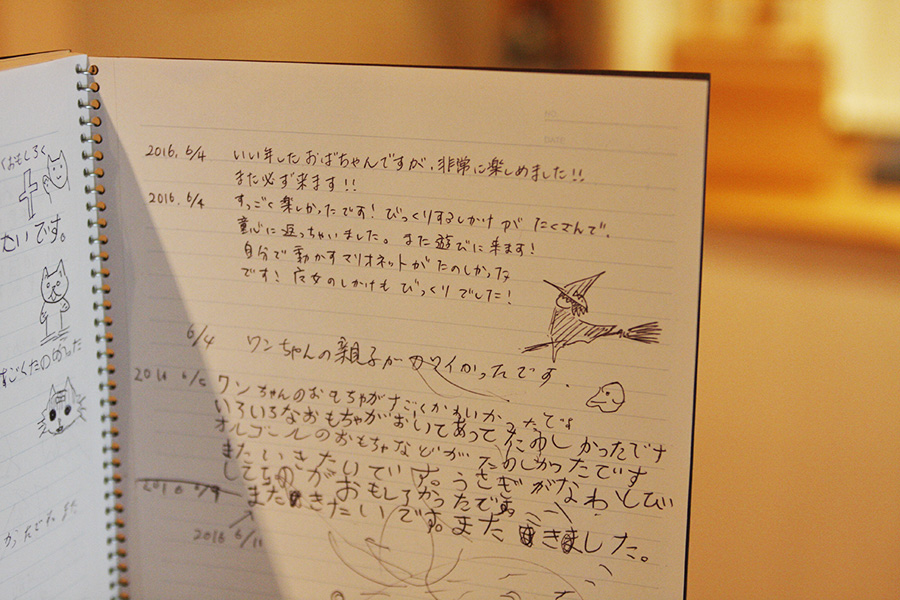 くおもしろく
たいです。
すごくたのしかった
かったです。また
NO.
DATE
2016. 6/4 いい年したおばちゃんですが、非常に楽しめました!!
また必ず来ます!!
2016. 6/4 すっごく楽しかったです! びっくりするしかけが たくさんで、
童心に返っちゃいました。また遊びに来ます!
自分で動かすマリオネットがたのしかった
です! 魔女のしかけも びっくりでした!
6/4 ワンちゃんの親子がカワイかったです.
ワンちゃんのおもちゃがすごくかわいかったです
いろいろなおもちゃがおいてあって たのしかったです
オルゴールのおもちゃなどが たのしかったです
またいきたいです。うさぎがなわとび
しているのがおもしろかったです。
またきたいです。また きました。
2016 6/11